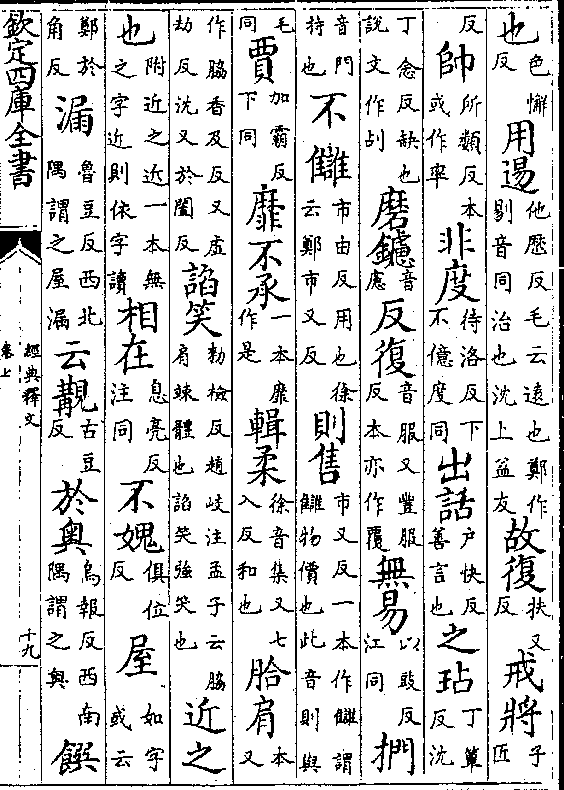 也色懈反用逷他歷反毛云遠也鄭作剔音同治也沈上益反故復扶又反戒將子匠
反帥所類反本或作率非度待洛反下不億度同出話户快反善言也之玷丁簟反沈
丁念反缺也說文作㓠磨鑢音慮反復音服又豐服反本亦作覆無易以豉反江同捫
音門持也不讎市由反用也徐云鄭市又反則售市又反一本作讎謂讎物價也此音則與
毛同賈加霸反下同靡不承一本靡作是輯柔徐音集又七入反和也胎肩本又
作脇香及反又虛劫反沈又於闔反諂笑勑檢反趙岐注孟子云脇肩竦體也諂笑強笑也近之
也附近之近一本無之字近則依字讀相在息亮反注同不媿俱位反屋如字或云
鄭於角反漏魯豆反西北隅謂之屋漏云覯古豆反於奥烏報反西南隅謂之奥饌
欽定四庫全書
經典釋文
卷上
十九